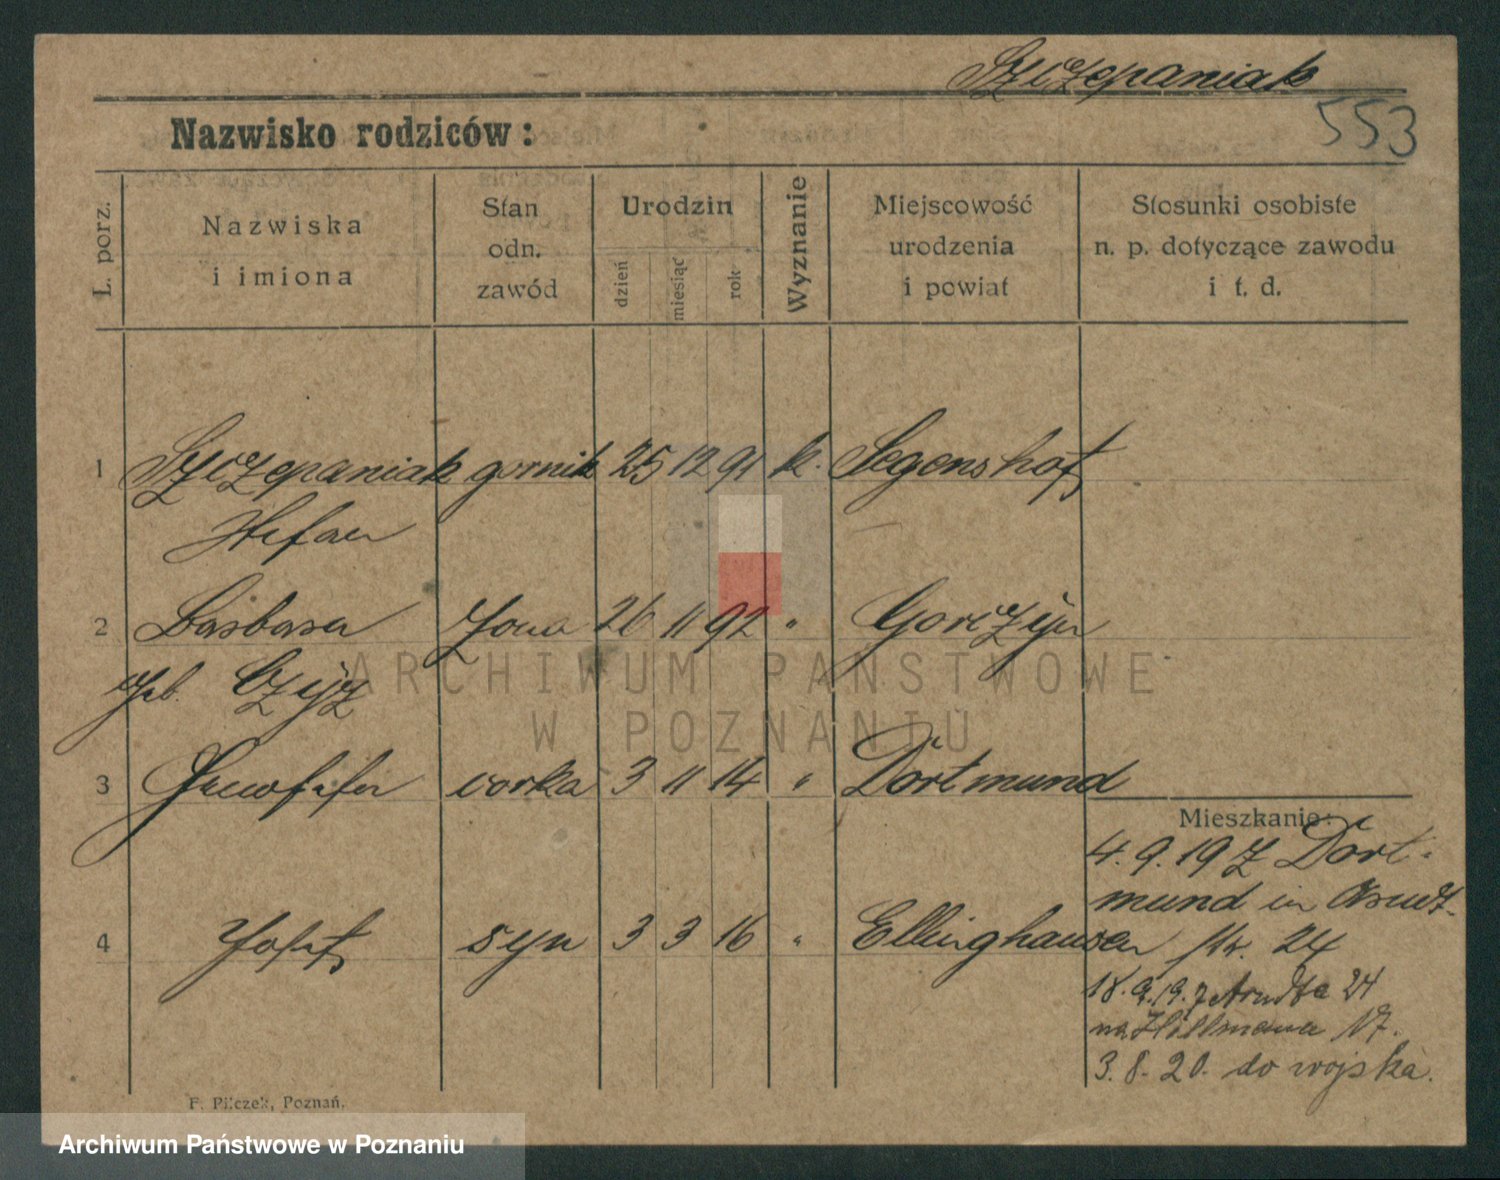 Szczepaniak
553
Nazwisko rodziców:
L. porz.
Nazwiska
i imiona
Stan
odn.
zawód
Urodzin
dzień
miesiąc
rok
Wyznanie
Miejscowość
urodzenia
i powiat
Stosunki osobiste
n. p. dotyczące zawodu
i t. d.
1 Szczepaniak gornik 25 12 91 k. Segenshof
Stefan
2 Barbara żona 26 11 92 " Gorczyn
geb. Czyż
3 Genowefa corka 3 11 14 " Dortmund
4 Josef syn 3 3 16 " Ellinghausen
Mieszkanie:
4.9.19 z Dort-
mund in Arndt-
str. 24
18.9.19. z Arndta 24
na Hillmana 17.
3.8.20. do wojska.
F. Pilczek, Poznań.
ARCHIWUM PAŃSTWOWE
W POZNANIU
Archiwum Państwowe w Poznaniu